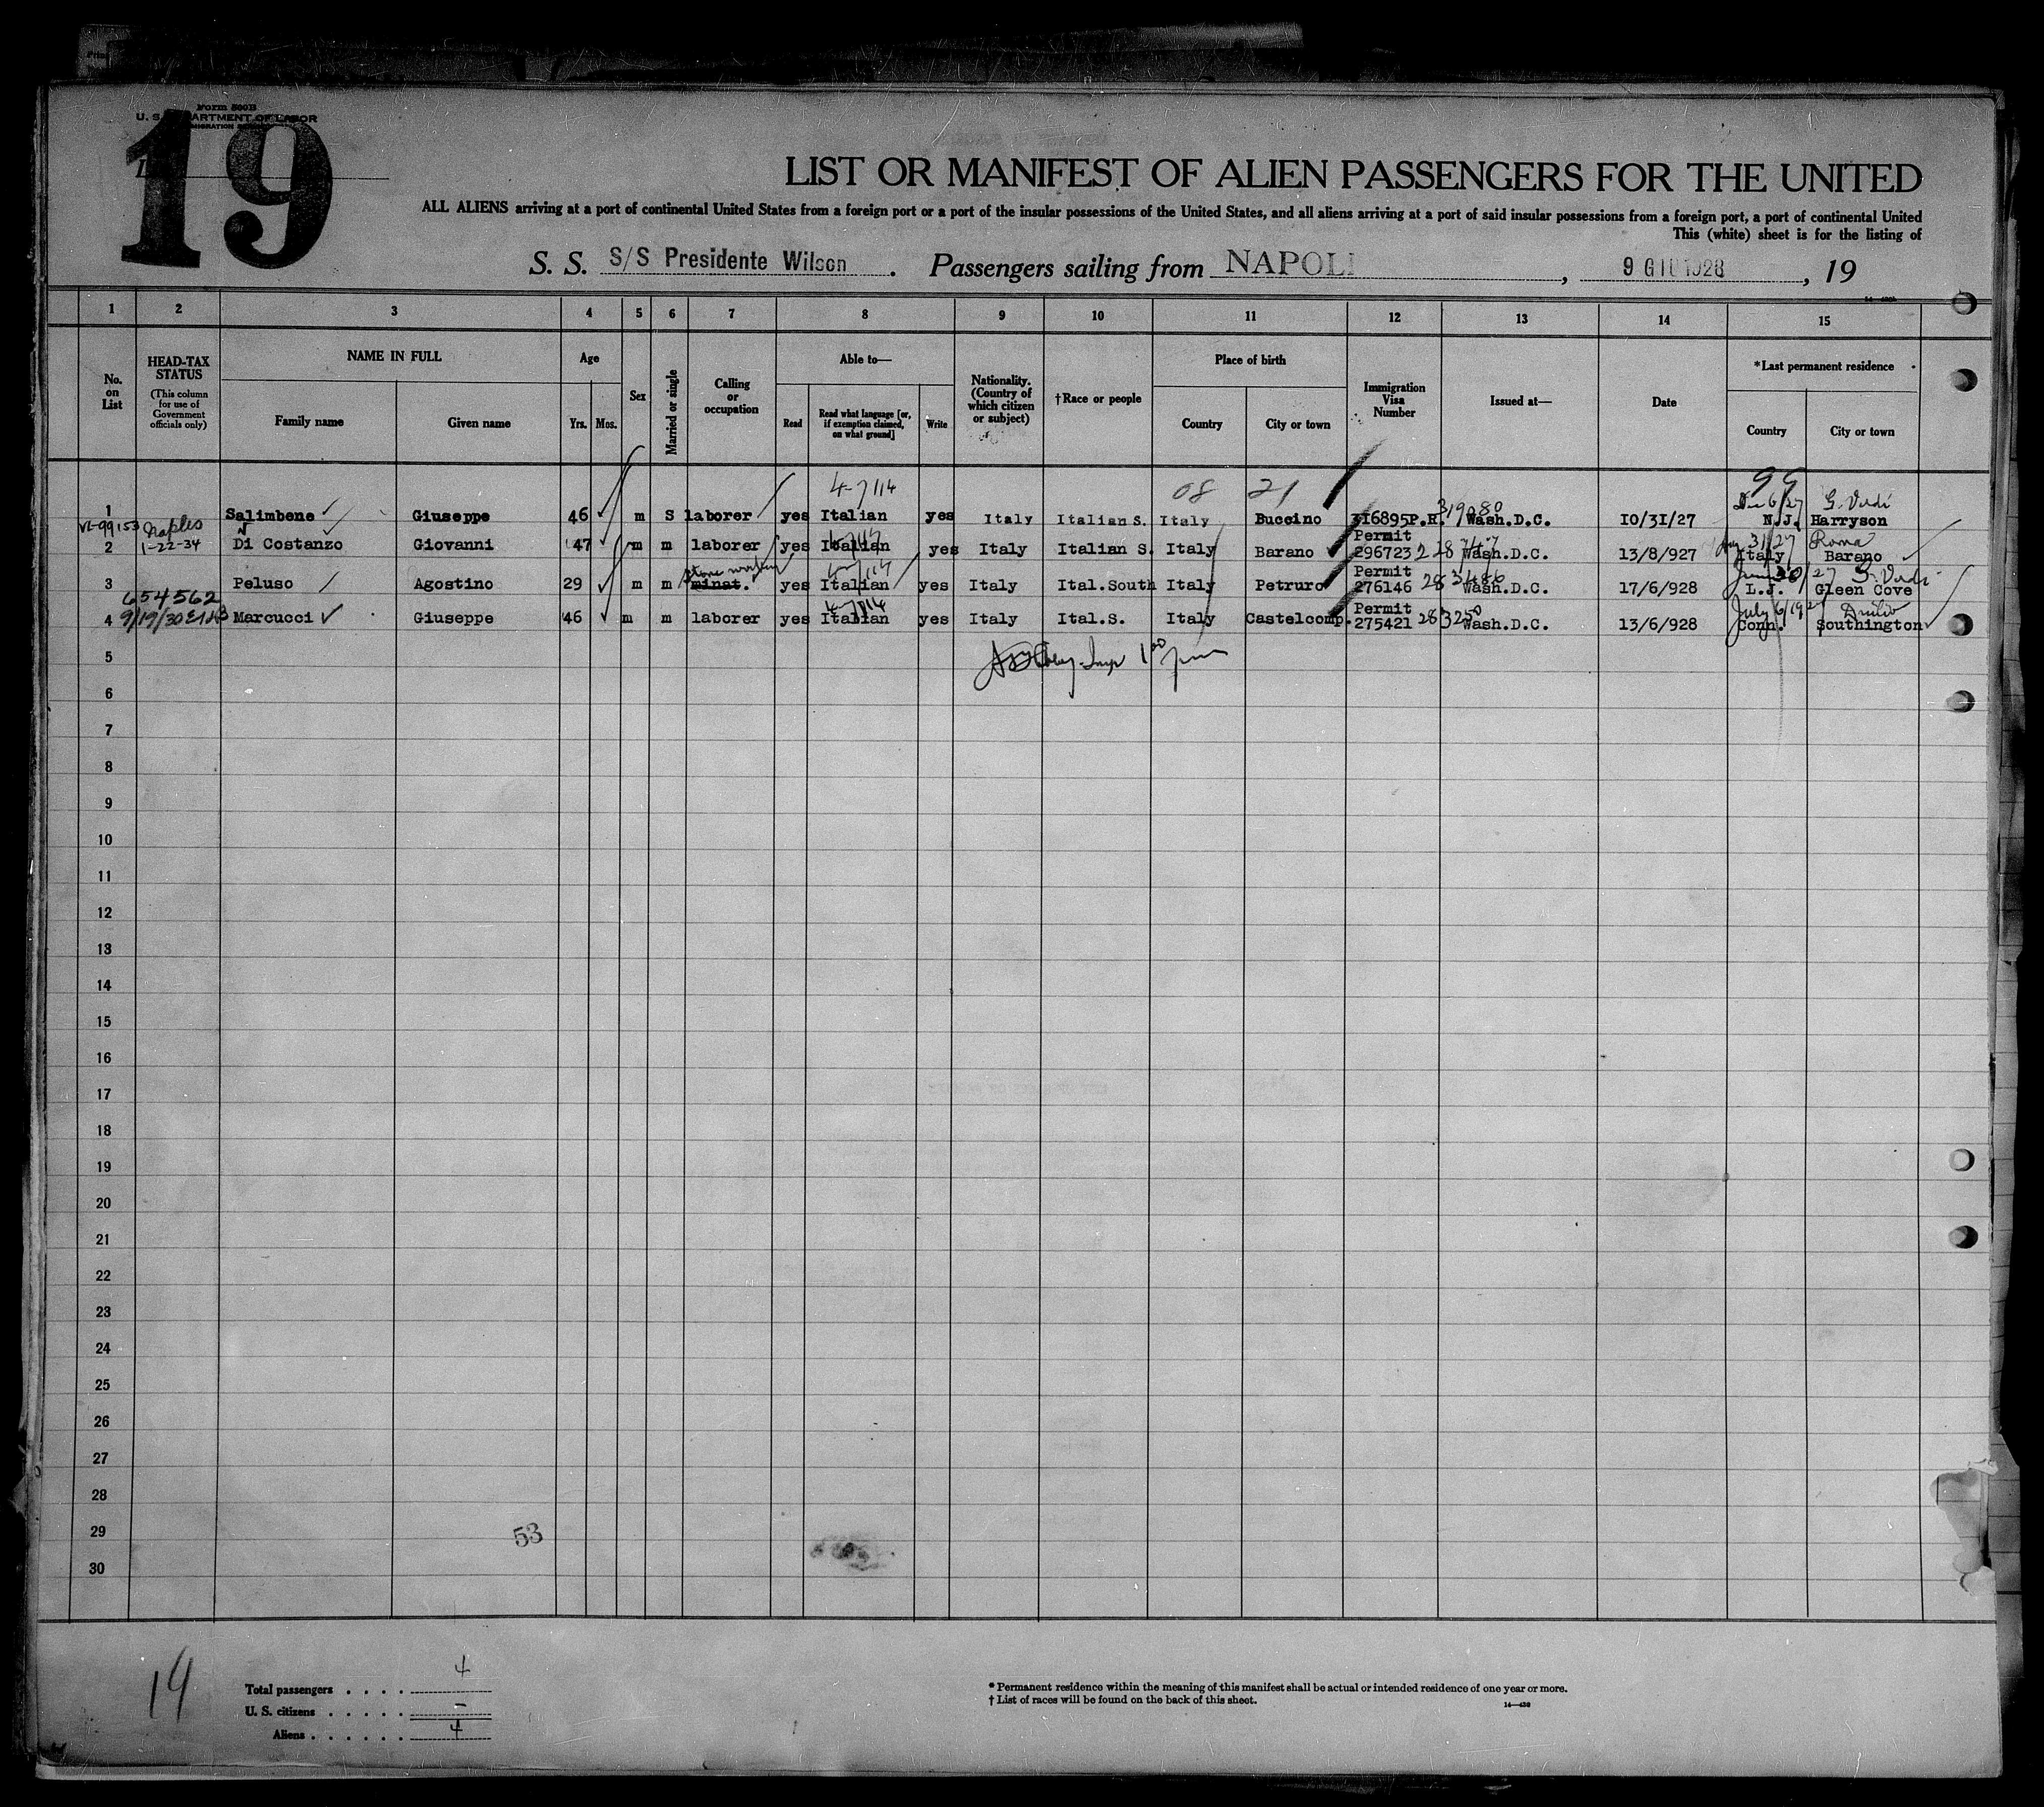 Form 500B
U. S. DEPARTMENT OF LABOR
IMMIGRATION
19
LIST OR MANIFEST OF ALIEN PASSENGERS FOR THE UNITED
ALL ALIENS arriving at a port of continental United States from a foreign port or a port of the insular possessions of the United States, and all aliens arriving at a port of said insular possessions from a foreign port, a port of continental United
This (white) sheet is for the listing of
S. S. S/S Presidente Wilson . Passengers sailing from NAPOLI , 9 GIU 1928 , 19
1 2 3 4 5 6 7 8 9 10 11 12 13 14 15
No. on List
HEAD-TAX STATUS (This column for use of Government officials only)
NAME IN FULL
Family name Given name
Age
Yrs. Mos.
Sex
Married or single
Calling or occupation
Able to—
Read Read what language [or, if exemption claimed, on what ground] Write
Nationality. (Country of which citizen or subject)
†Race or people
Place of birth
Country City or town
Immigration Visa Number
Issued at—
Date
*Last permanent residence
Country City or town
4-7/14 08 21 99
319080 Dec 6/27 G. Verdi
1 Salimbene Giuseppe 46 m S laborer yes Italian yes Italy Italian S. Italy Buccino 316895P.R. Wash.D.C. 10/31/27 N.J. Harryson
Naples
Permit 31/27 Roma
2 1-22-34 Di Costanzo Giovanni 47 m m laborer yes Italian yes Italy Italian S. Italy Barano 296723 Wash.D.C. 13/8/927 Italy Barano
Stone worker Permit 283486 June 20/27 G. Verdi
3 Peluso Agostino 29 m m minat. yes Italian yes Italy Ital.South Italy Petruro 276146 Wash.D.C. 17/6/928 L.J. Gleen Cove
654562 4-7/14 Permit 283250 July 6/192 Duilio
4 9/19/30 Marcucci Giuseppe 46 m m laborer yes Italian yes Italy Ital.S. Italy Castelcomp. 275421 Wash.D.C. 13/6/928 Conn. Southington
5
6
7
8
9
10
11
12
13
14
15
16
17
18
19
20
21
22
23
24
25
26
27
28
29
53
30
19
Total passengers . . . . 4
U. S. citizens . . . . . –
Aliens . . . . . . 4
* Permanent residence within the meaning of this manifest shall be actual or intended residence of one year or more.
† List of races will be found on the back of this sheet.
14—430